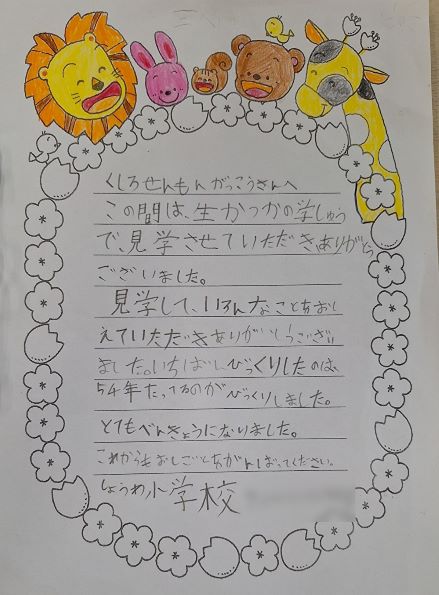 くしろせんもんがっこうさんへ
この間は、生かつかの学しゅう
で、見学させていただきありがとう
ございました。
見学して、いろんなことをおし
えていただきありがとうござい
ました。いちばんびっくりしたのは、
54年たってるのがびっくりしました。
とてもべんきょうになりました。
これからもおしごとをがんばってください。
しょうわ小学校